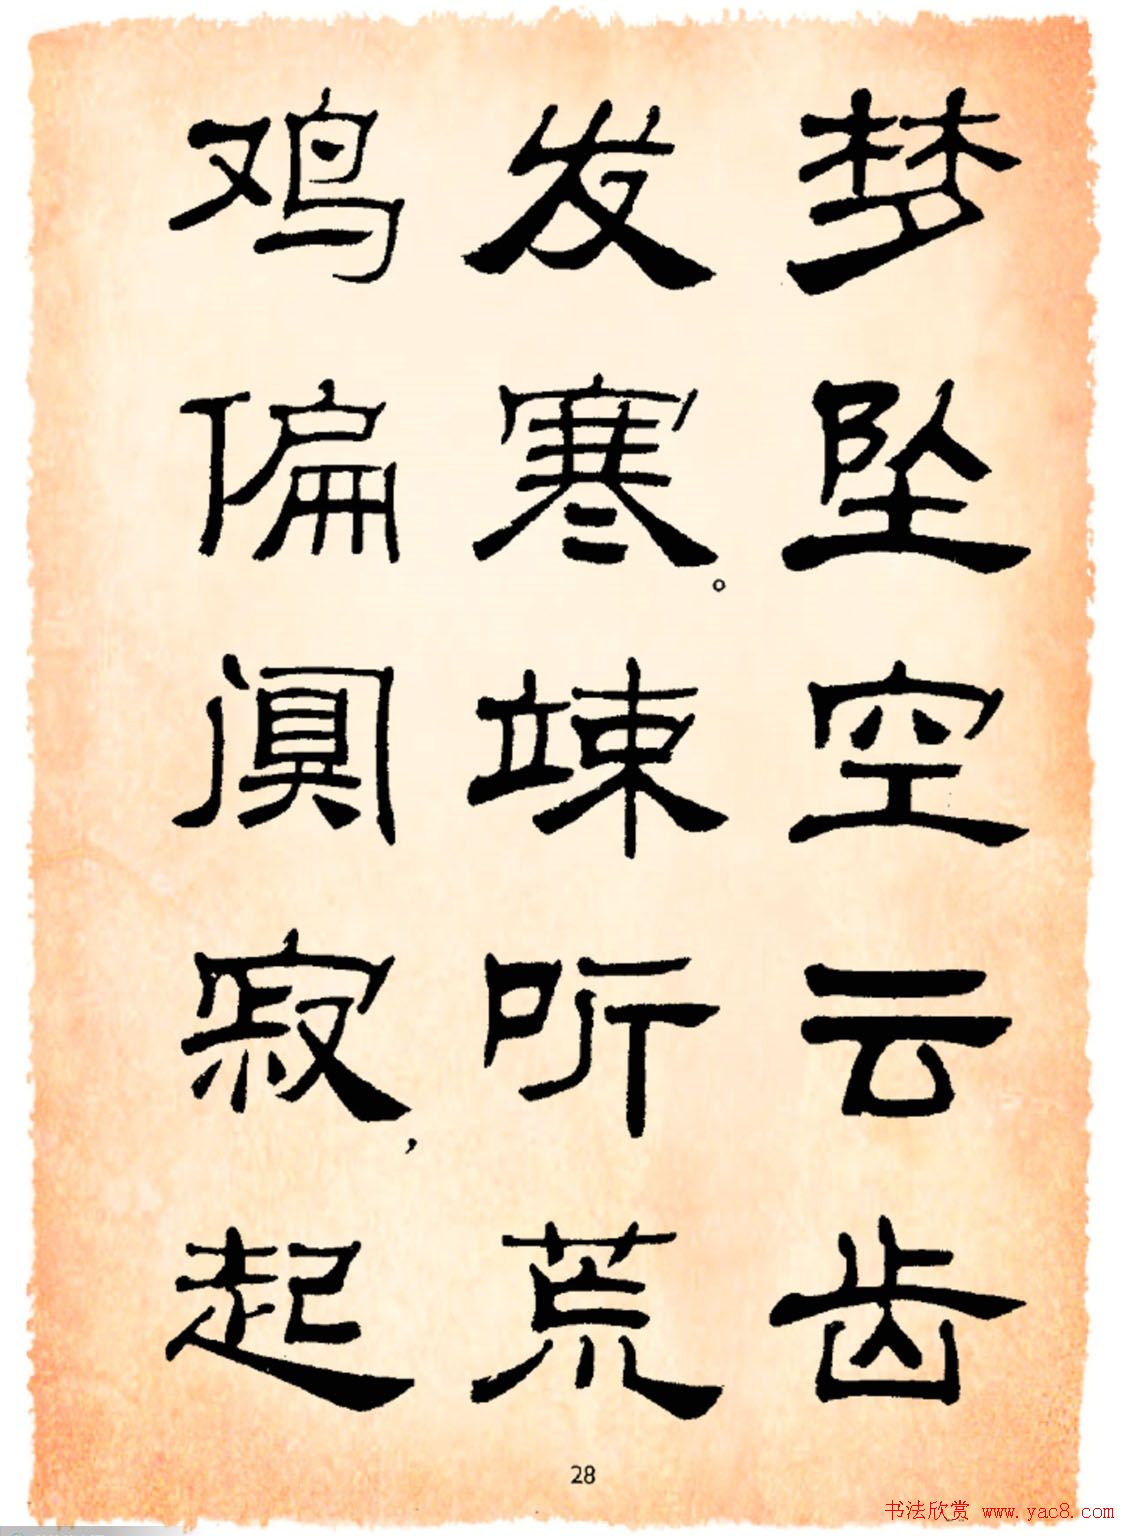 梦坠空云齿
发寒。竦听荒
鸡偏阒寂，起
28
书法欣赏 www.yac8.com